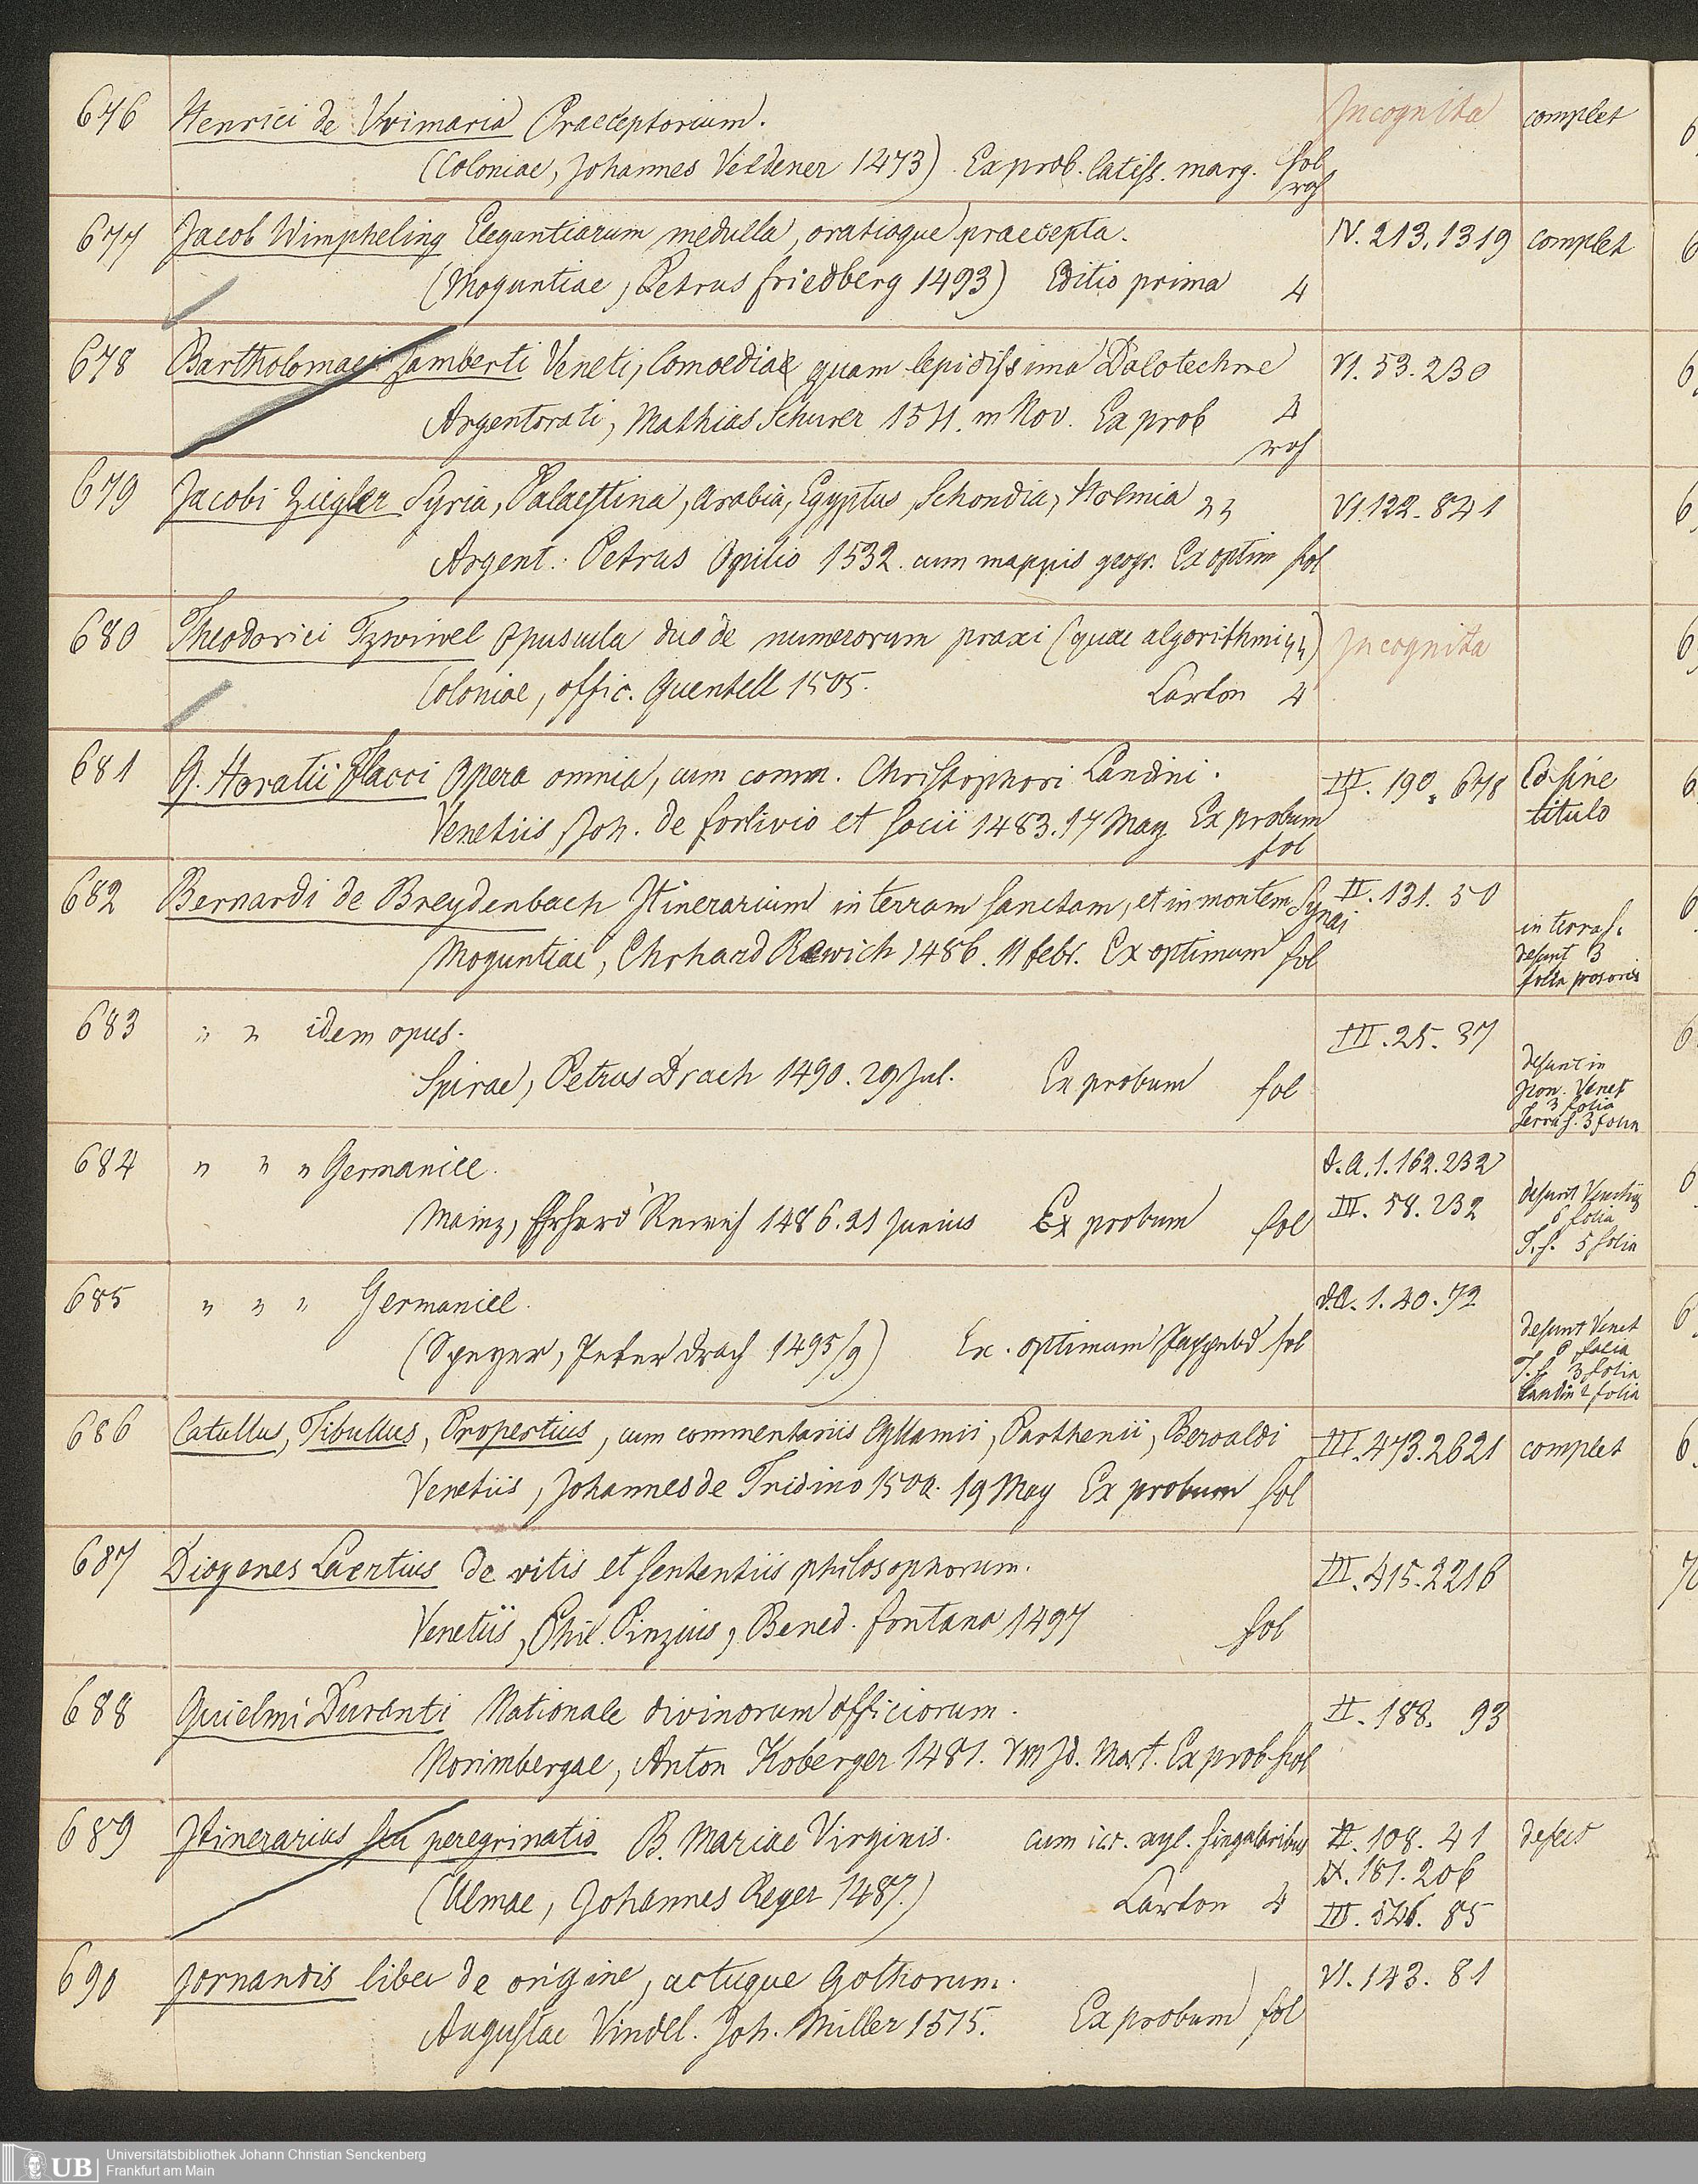 676 Henrici de Vrimaria Praeceptorium. Incognita complet
(Coloniae, Johannes Veldener 1473) Ex prob. latiss. marg. fol
roh
677 Jacob Wimpheling Elegantiarum medulla, oratiaque praecepta. IV. 213. 1319 complet
(Moguntiae, Petrus Friedberg 1493) Editio prima 4
678 Bartholomaei Zamberti Veneti, Comoediae quam lepidissima Dolotechne VI. 53. 230
Argentorati, Mathias Schurer 1511. m Nov. Ex prob 4
roh
679 Jacobi Ziegler Syria, Palaestina, Arabia, Egyptus, Schondia, Holmia VI. 122. 841
Argent. Petrus Opilio 1532. cum mappis geogr. Ex optim fol
680 Theodorici Tzwivel Opuscula duo de numerorum praxi (quae algorithmi) Incognita
Coloniae, offic. Quentell 1505. Carton 4
681 Q. Horatii Flacci Opera omnia, cum comm. Christophori Landini. III. 190. 678 Co sine
titulo
Venetiis, Joh. de forlivio et socii 1483. 17 May Ex probum
fol
682 Bernardi de Breydenbach Itinerarium in terram sanctam, et in montem Synai II. 131. 50
Moguntiae, Ehrhard Rewich 1486. 11 febr. Ex optimum fol
in terra s.
desunt 3
folia
683 " " idem opus. III. 25. 37
Spirae, Petrus Drach 1490. 29 Jul. Ex probum fol
desunt in
Venet
3 folia
Terra s. 3 folia
684 " " " Germanice. d. A. 1. 162. 232
Mainz, Erhard Rewich 1486. 21 Junius Ex probum fol III. 58. 232
desunt Venetiis
6 folia
T. s. 5 folia
685 " " " Germanice. d. A. 1. 40. 72
(Speyer, Peter Drach 1495/9) Ex. optimum fol
desunt Venet
6 folia
T. s. 3 folia
2 folia
686 Catullus, Tibullus, Propertius, cum commentariis Cyllamii, Parthenii, Beroaldi III. 473. 2621 complet
Venetiis, Johannes de Tridino 1500. 19 May Ex probum fol
687 Diogenes Laertius de vitis et sententiis philosophorum. III. 415. 2216
Venetiis, Phil. Pinzius, Bened. Fontana 1497 fol
688 Guielmi Duranti Rationale divinorum officiorum. II. 188. 93
Norimbergae, Anton Koberger 1481. VIII Id. Mart. Ex prob fol
689 Itinerarius seu peregrinatio B. Mariae Virginis. cum icr. xyl. singularibus II. 108. 41 defect
IX. 181. 206
(Ulmae, Johannes Reger 1487.) Carton 4 III. 546. 85
690 Jornandis liber de origine, actuque Gothorum. VI. 143. 81
Augustae Vindel. Joh. Miller 1515. Ex probum fol
UB Universitätsbibliothek Johann Christian Senckenberg
Frankfurt am Main